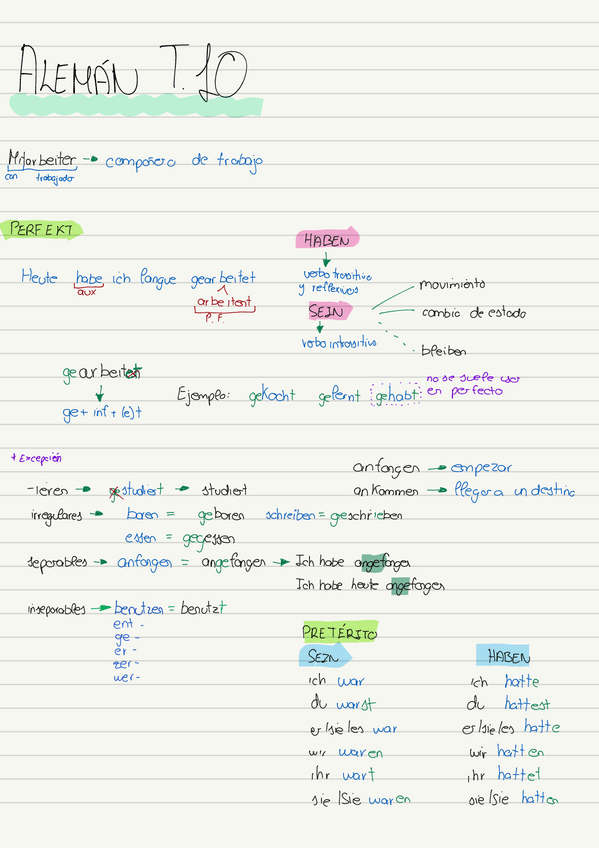 ALEMÁN T.10
Mitarbeiter → compañero de trabajo
con trabajador
PERFEKT
HABEN
verbo transitivo
y reflexivos
Heute habe ich langue gearbeitet
aux
arbeitent
P.F.
SEIN
verbo intransitivo
movimiento
cambio de estado
bleiben
gearbeitet
ge + inf + (e)t
Ejemplo: gekocht gelernt gehabt
no se suele usar
en perfecto
* Excepción
-ieren → gestudiert → studiert
irregulares → baren = geboren schreiben = geschrieben
essen = gegessen
separables → anfangen = angefangen → Ich habe angefangen
Ich habe heute angefangen
inseparables → benutzen = benutzt
ent -
ge -
er -
zer -
ver -
anfangen → empezar
ankommen → llegar a un destino
PRETÉRITO
SEIN
ich war
du warst
er/sie/es war
wir waren
ihr wart
sie/Sie waren
HABEN
ich hatte
du hattest
er/sie/es hatte
wir hatten
ihr hattet
sie/Sie hatten